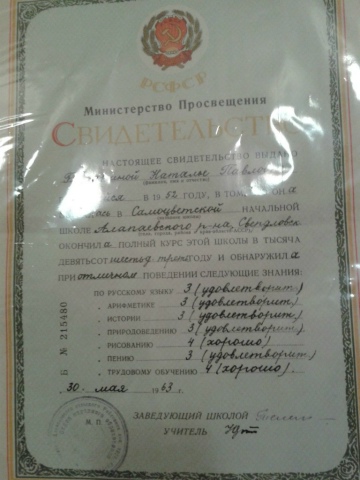 РСФСР
Министерство Просвещения
СВИДЕТЕЛЬСТВО
НАСТОЯЩЕЕ СВИДЕТЕЛЬСТВО ВЫДАНО
Наталье Павловне
В 1952 ГОДУ, В ТОМ, ЧТО ОНА
В Самоцветской НАЧАЛЬНОЙ
ШКОЛЕ Алапаевского р-на Свердловск
ОКОНЧИЛ а ПОЛНЫЙ КУРС ЭТОЙ ШКОЛЫ В ТЫСЯЧА
ДЕВЯТЬСОТ ГОДУ И ОБНАРУЖИЛ а
ПРИ отличном ПОВЕДЕНИИ СЛЕДУЮЩИЕ ЗНАНИЯ:
ПО РУССКОМУ ЯЗЫКУ 3 (удовлетворит)
„ АРИФМЕТИКЕ 3 (удовлетворит)
„ ИСТОРИИ 3 (удовлетворит)
„ ПРИРОДОВЕДЕНИЮ 3 (удовлетворит)
„ РИСОВАНИЮ 4 (хорошо)
„ ПЕНИЮ 3 (удовлетворит)
„ ТРУДОВОМУ ОБУЧЕНИЮ 4 (хорошо)
Б № 215480
30 мая 1963 г.
М. П.
ЗАВЕДУЮЩИЙ ШКОЛОЙ
УЧИТЕЛЬ